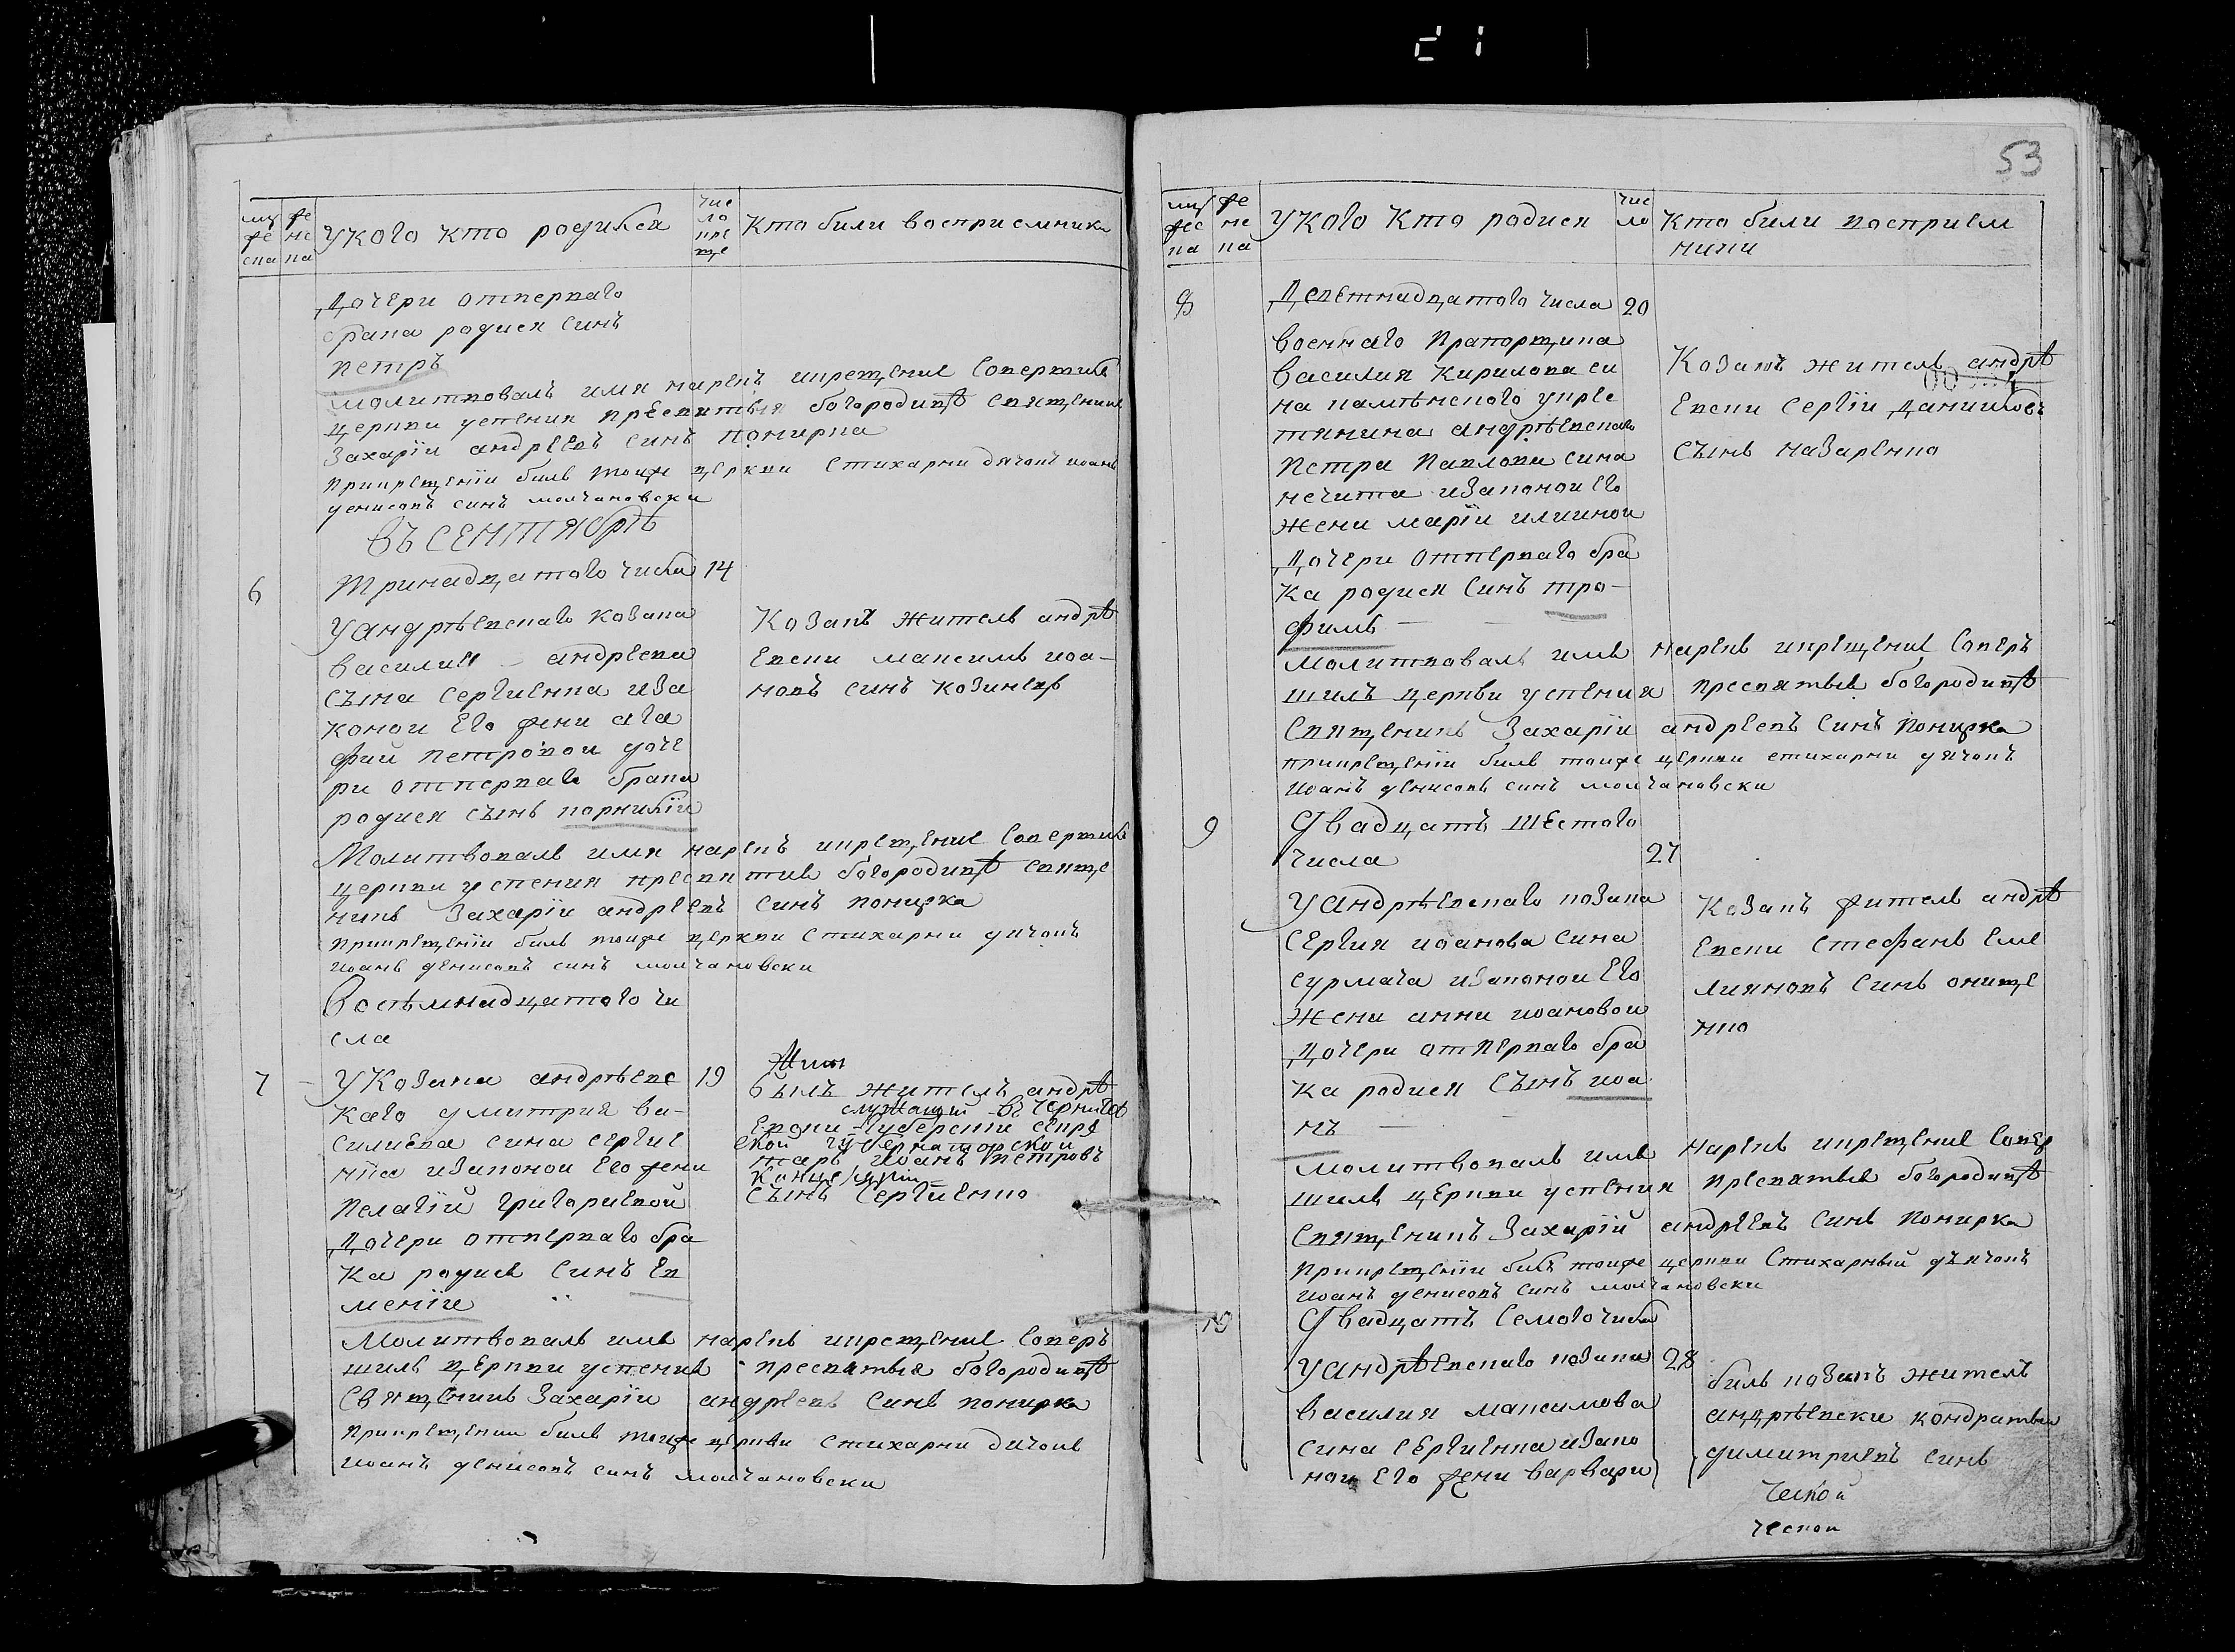 21
му
же
ска
же
не
ка
У кого кто родился
чис
ло
кре
ще
Кто били восприемники
Дочери отперваго
брака родися Синъ
петръ
молитвовалъ имя нареклъ икрещение Совершилъ
церкви успения пресвятыя богородицѣ священникъ
Захарїи андреевъ синъ понирка
прикрещенїи билъ тоиже церкви Стихарни дячокъ иоанъ
денисовъ синъ молчановски
въ сентябрѣ
6
тринадцатого числа 14
У андрѣевскаго козака
василия андреева
сына Сергиенка иза
коной его жени ага
фии петровои доче
ри отперваго брака
родися сынъ корнилїи
Козакъ житель андрѣ
Евски максимъ иоа-
новъ синъ козинецъ
Молитвовалъ имя нареклъ икрещение Совершилъ
церкви успения пресвятия богородицѣ свяще
никъ Захарїи андреевъ синъ понирка
прикрещенїи билъ тоиже церкви Стихарни дячокъ
иоанъ денисовъ синъ молчановски
Восѣмнадцатого чи
сла
7
У козака андрѣевс 19
каго димитрия ва-
силиева сина сергие
нка изаконои его жени
пелагїи григориевой
Дочери отперваго бра
ка родися Синъ Ев
менїи
былъ житель андрѣ
служащий в Чернигов
Евски губернии секре
ской губернаторской
тарь иоанъ петровъ
сынъ Сергиенко
Молитвовалъ имя нареклъ икрещение Соверъ
шилъ церкви успения пресвятыя богородицѣ
Священникъ Захарїи андреевъ Синъ понирка
прикрещении билъ тоиже церкви Стихарни дячокъ
иоанъ денисовъ синъ молчановски
53
му
жес
ка
же
не
ка
У кого кто родися
чис
ло
Кто били восприем
ники
8
Деветнадцатого числа 20
военнаго прапорщика
василия кирилова си
на памѣнского укрес
тянина андрѣевскаго
петра павлова сина
нечита изаконои его
жени марїи илиинои
Дочери отперваго бра
ка родися Синъ тро-
фимъ
Козакъ житель андрѣ
Евски Сергїи даниловъ
сынъ назаренко
молитвовалъ имя нареклъ икрещение Соверъ
шилъ церкви успения пресвятыя богородицѣ
Священикъ Захарїи андреевъ Синъ понирка
прикрещенїи билъ тоиже церкви стихарни дячокъ
иоанъ денисовъ синъ молчановски
9
Двадцатъ шестого
числа 27
У андрѣевскаго козака
Сергия иоанова сина
сурмача изаконои Его
жени анни иоановои
Дочери отперваго бра
ка родися Сынъ иоа
нъ
Козакъ житель андрѣ
Евски Стефанъ Еме
лияновъ Синъ онище
нко
молитвовалъ имя нареклъ икрещение Совер
шилъ церкви успения пресвятыя богородицѣ
Священикъ Захарїй андреевъ Синъ понирка
прикрещенїи билъ тоиже церкви Стихарный дъячокъ
иоанъ денисовъ синъ молчановски
10
Двадцатъ Семого числа
У андрѣевскаго козака 28
василия максимова
сина Сергиенка изако
нои его жени варвари
билъ козакъ житель
андрѣевски кондратый
димитриевъ Синъ
ческой
ческои